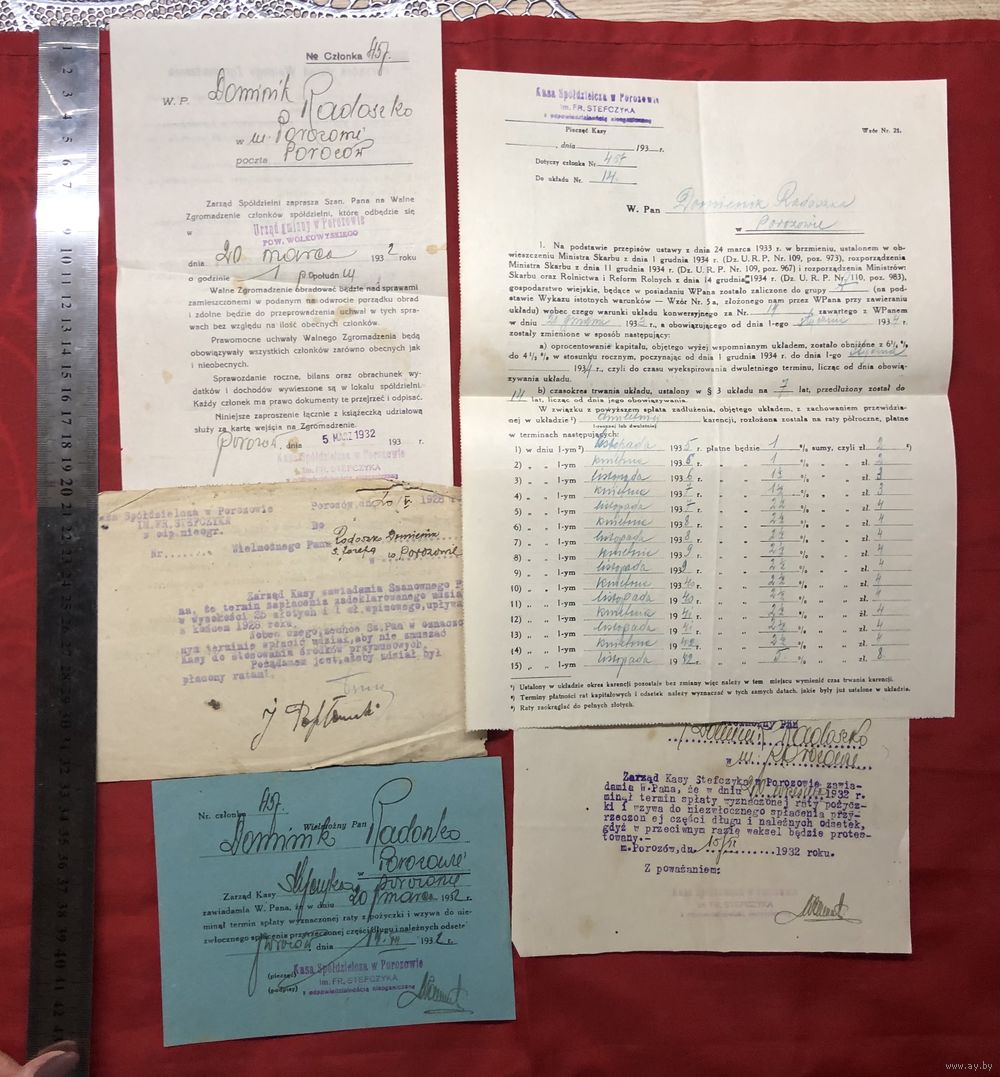 № Członka 457.
W. P. Dominik Radoszko
w m. Porozowie
poczta Porozów
Zarząd Spółdzielni zaprasza Szan. Pana na Walne
Zgromadzenie członków spółdzielni, które odbędzie się
w Urząd gminy w Porozowie
POW. WOŁKOWYSKIEGO
dnia 20 marca 1932 roku
a godzinie 1 popołudniu
Walne Zgromadzenie obradować będzie nad sprawami
zamieszczonemi w podanym na odwrocie porządku obrad
i zdolne będzie do przeprowadzenia uchwał w tych spra-
wach bez względu na ilość obecnych członków.
Prawomocne uchwały Walnego Zgromadzenia będą
obowiązywały wszystkich członków zarówno obecnych jak
i nieobecnych.
Sprawozdanie roczne, bilans oraz obrachunek wy-
datków i dochodów wywieszone są w lokalu spółdzielni.
Każdy członek ma prawo dokumenty te przejrzeć i odpisać.
Niniejsze zaproszenie łącznie z książeczką udziałową
służy za kartę wejścia na Zgromadzenie.
Porozów, dnia 5 MARZ 1932 193 r.
Kasa Spółdzielcza w Porozowie
im. FR. STEFCZYKA
Kasa Spółdzielcza w Porozowie
im. FR. STEFCZYKA
z odpowiedzialnością nieograniczoną
Pieczęć Kasy
Wzór Nr. 21.
, dnia 193 r.
Dotyczy członka Nr. 457
Do układu Nr. 14.
W. Pan
w Porozowie
1. Na podstawie przepisów ustawy z dnia 24 marca 1933 r. w brzmieniu, ustalonem w ob-
wieszczeniu Ministra Skarbu z dnia 1 grudnia 1934 r. (Dz. U. R. P. Nr. 109, poz. 973), rozporządzenia
Ministra Skarbu z dnia 11 grudnia 1934 r. (Dz. U. R. P. Nr. 109, poz. 967) i rozporządzenia Ministrów:
Skarbu oraz Rolnictwa i Reform Rolnych z dnia 14 grudnia 1934 r. (Dz. U. R. P. Nr. 110, poz. 983),
gospodarstwo wiejskie, będące w posiadaniu WPana zostało zaliczone do grupy (na pod-
stawie Wykazu istotnych warunków — Wzór Nr. 5a, złożonego nam przez WPana przy zawieraniu
układu) wobec czego warunki układu konwersyjnego za Nr. 14 zawartego z WPanem
w dniu 193 r., a obowiązującego od dnia 1-go 193 r.
zostały zmienione w sposób następujący:
a) oprocentowanie kapitału, objętego wyżej wspomnianym układem, zostało obniżone z 6½ %
do 4½ % w stosunku rocznym, poczynając od dnia 1 grudnia 1934 r. do dnia 1-go
193 r., czyli do czasu wyekspirowania dwuletniego terminu, licząc od dnia obowią-
zywania układu.
b) czasokres trwania układu, ustalony w § 3 układu na 7 lat, przedłużony został do
14 lat, licząc od dnia jego obowiązywania.
W związku z powyższem spłata zadłużenia, objętego układem, z zachowaniem przewidzia-
nej w układzie ¹) karencji, rozłożona została na raty półroczne, płatne
w terminach następujących:
1) w dniu 1-ym ²) listopada 1935 r. płatne będzie 1 % sumy, czyli zł. 2 ³)
2) „ „ 1-ym kwietnia 1936 r. „ „ 1 % „ „ zł. 2
3) „ „ 1-ym listopada 1936 r. „ „ 1½ % „ „ zł. 3
4) „ „ 1-ym kwietnia 1937 r. „ „ 1½ % „ „ zł. 3
5) „ „ 1-ym listopada 1937 r. „ „ % „ „ zł. 4
6) „ „ 1-ym kwietnia 1938 r. „ „ % „ „ zł. 4
7) „ „ 1-ym listopada 1938 r. „ „ % „ „ zł. 4
8) „ „ 1-ym kwietnia 1939 r. „ „ % „ „ zł. 4
9) „ „ 1-ym listopada 1939 r. „ „ % „ „ zł. 4
10) „ „ 1-ym kwietnia 1940 r. „ „ % „ „ zł. 4
11) „ „ 1-ym listopada 1940 r. „ „ % „ „ zł. 4
12) „ „ 1-ym kwietnia 1941 r. „ „ % „ „ zł. 4
13) „ „ 1-ym listopada 1941 r. „ „ % „ „ zł. 4
14) „ „ 1-ym kwietnia 1942 r. „ „ % „ „ zł. 4
15) „ „ 1-ym listopada 1942 r. „ „ 5 % „ „ zł. 8
¹) Ustalony w układzie okres karencji pozostaje bez zmiany więc należy w tem miejscu wymienić czas trwania karencji.
²) Terminy płatności rat kapitałowych i odsetek należy wyznaczać w tych samych datach, jakie były już ustalone w układzie.
³) Raty zaokrąglać do pełnych złotych.
asa Spółdzielcza w Porozowie
IM. FR. STEFCZYKA
z odp. nieogr.
Porozów, dn. 20 1928 r
Do
Nr. Wielmożnego Pana Radoszko Dominika
w Porozowie
Zarząd Kasy zawiadamia Szanownego P
na, że termin zapłacenia zadeklarowanego udzia
w wysokości 25 złotych i 1 zł. wpisowego, upływ
z końcem 1928 roku.
Wobec czego, zechce Sz. Pan w oznaczo
nym terminie wpłacić udział, aby nie zmuszać
Kasy do stosowania środków przymusowych.
Pożądanem jest, ażeby udział był
płacony ratami.
Wielmożny Pan
Dominik Radoszko
w m. Porozowie
Zarząd Kasy Stefczyka w Porozowie zawia-
damia W.Pana, że w dniu 20 1932 r.
minął termin spłaty wyznaczonej raty pożycz-
ki i wzywa do niezwłocznego spłacenia przy-
rzeczonej części długu i należnych odsetek,
gdyż w przeciwnym razie weksel będzie protes-
towany.-
m. Porozów, dn. 1932 roku.
Z poważaniem:
Nr. członka 457.
Wielmożny Pan
Dominik Radoszko
w Porozowie
Zarząd Kasy Stefczyka w Porozowie
zawiadamia W. Pana, że w dniu 20 marca 1932 r.
minął termin spłaty wyznaczonej raty z pożyczki i wzywa do nie-
zwłocznego spłacenia przyrzeczonej części długu i należnych odsetek
Porozów dnia 1932 r.
(pieczęć)
(podpisy)
Kasa Spółdzielcza w Porozowie
im. FR. STEFCZYKA
z odpowiedzialnością nieograniczoną
www.ay.by